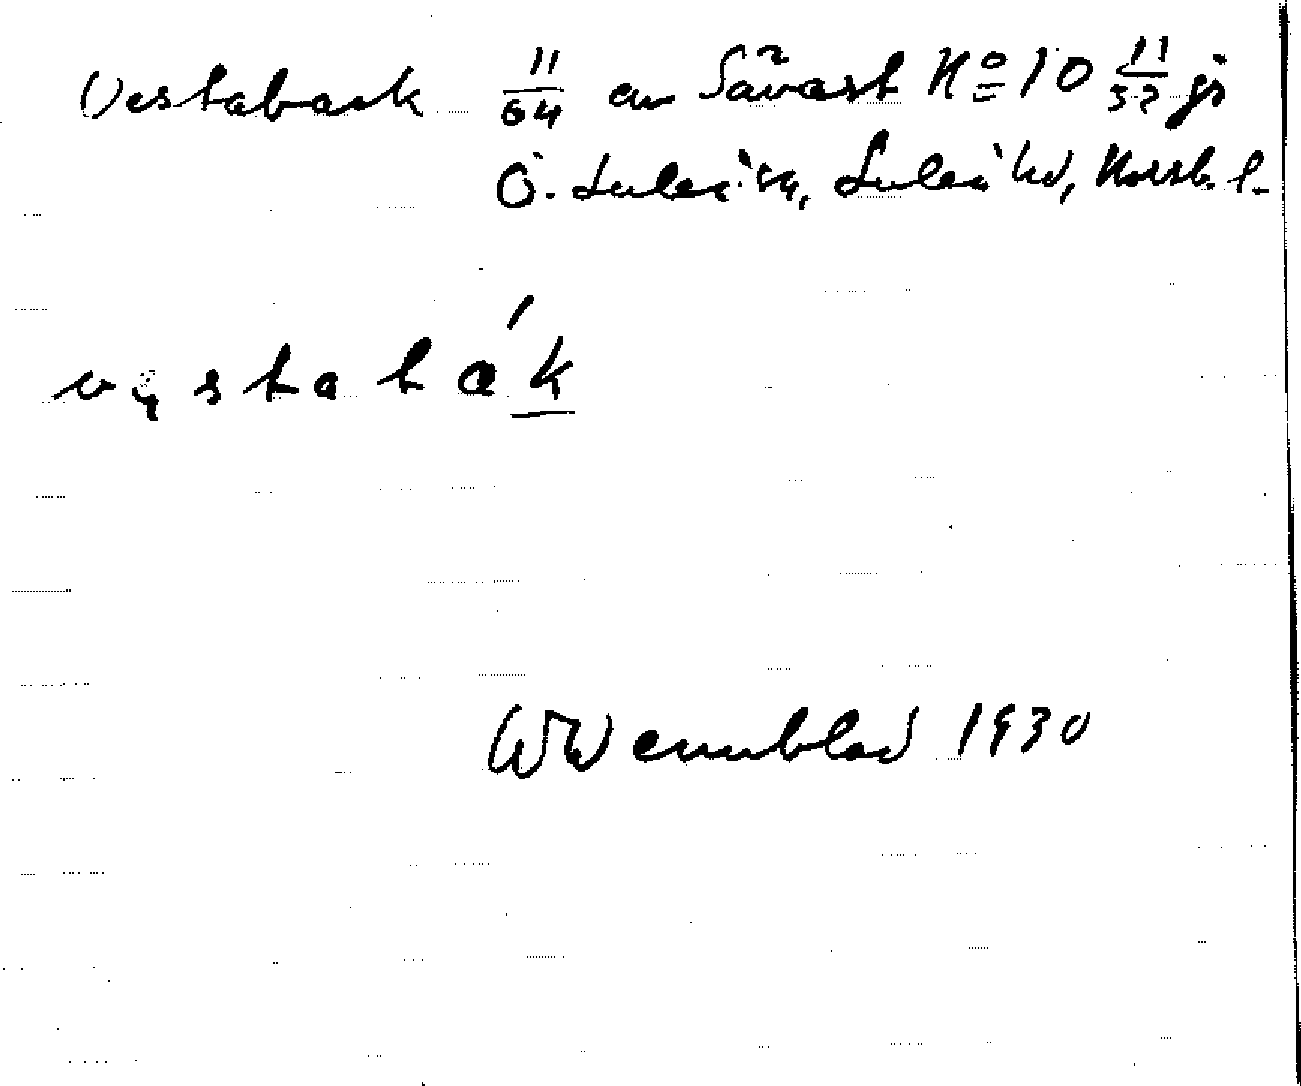 Vestabäck 11/64 av Sävast No 10 11/32 js
Ö. Luleå sn, Luleå hd, Norrb. l.
v ę s t a b á k
WWennblad 1930